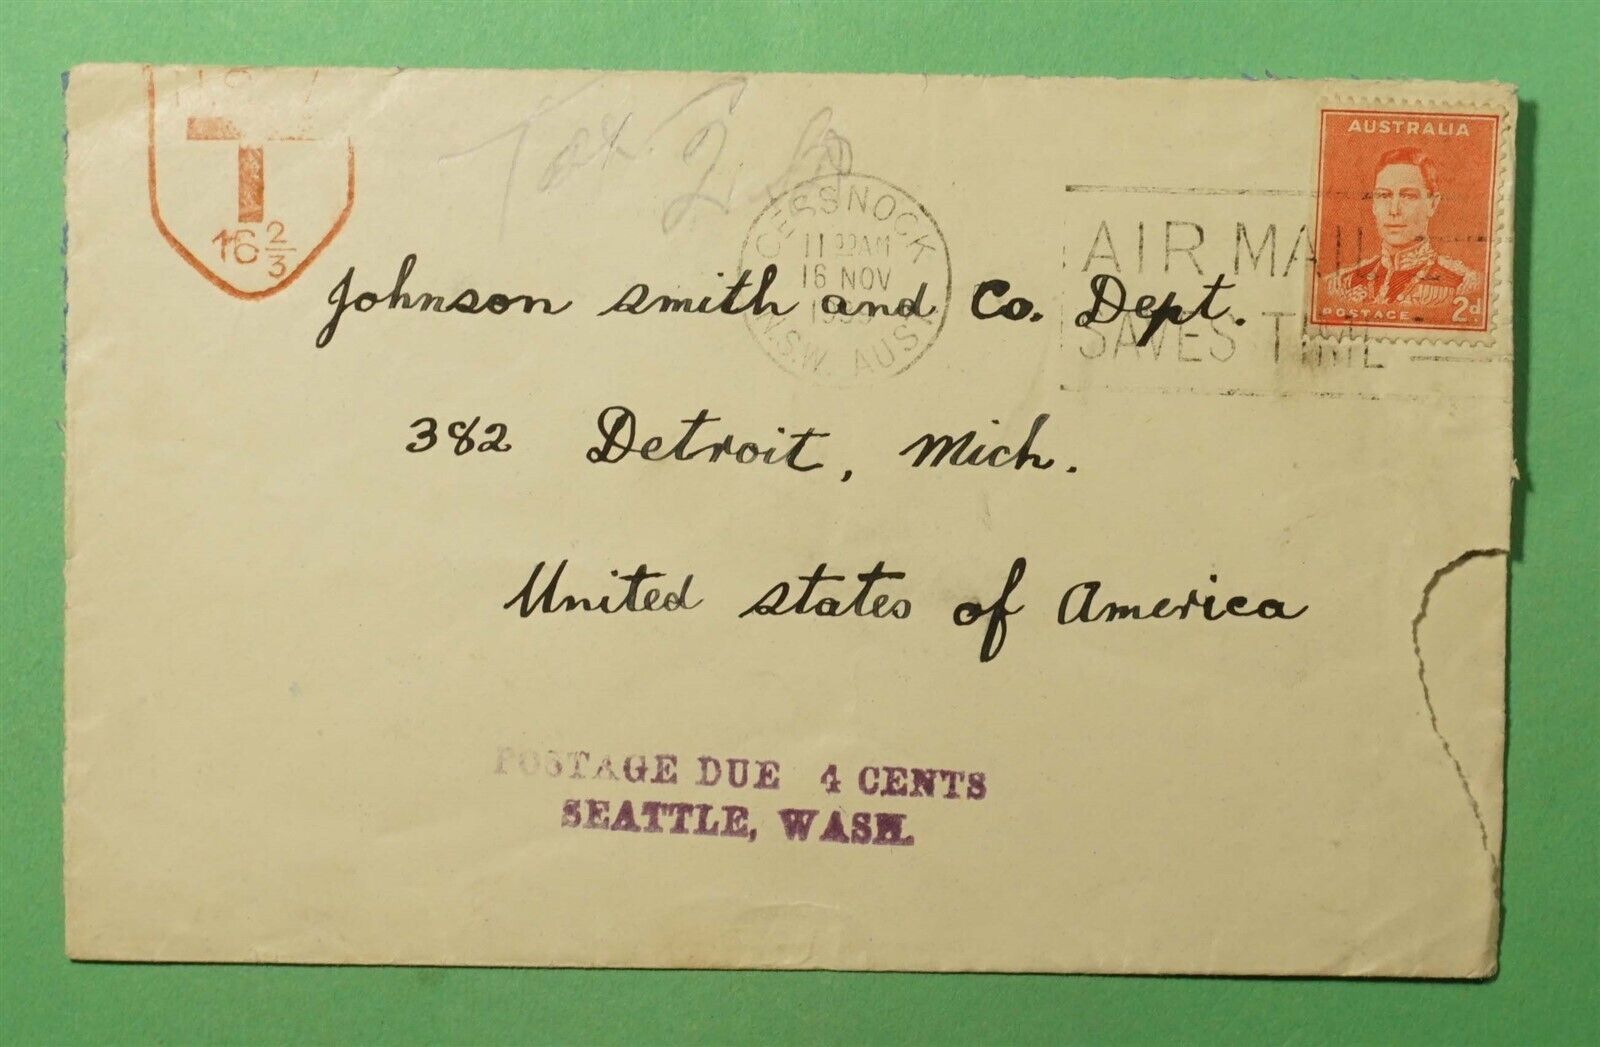 T
16 2/3
Tax 2
AUSTRALIA
POSTAGE 2d.
CESSNOCK
11 AM
16 NOV
N.S.W. AUST
AIR MAIL
SAVES TIME
Johnson smith and Co. Dept.
382 Detroit, Mich.
United states of America
POSTAGE DUE 4 CENTS
SEATTLE, WASH.